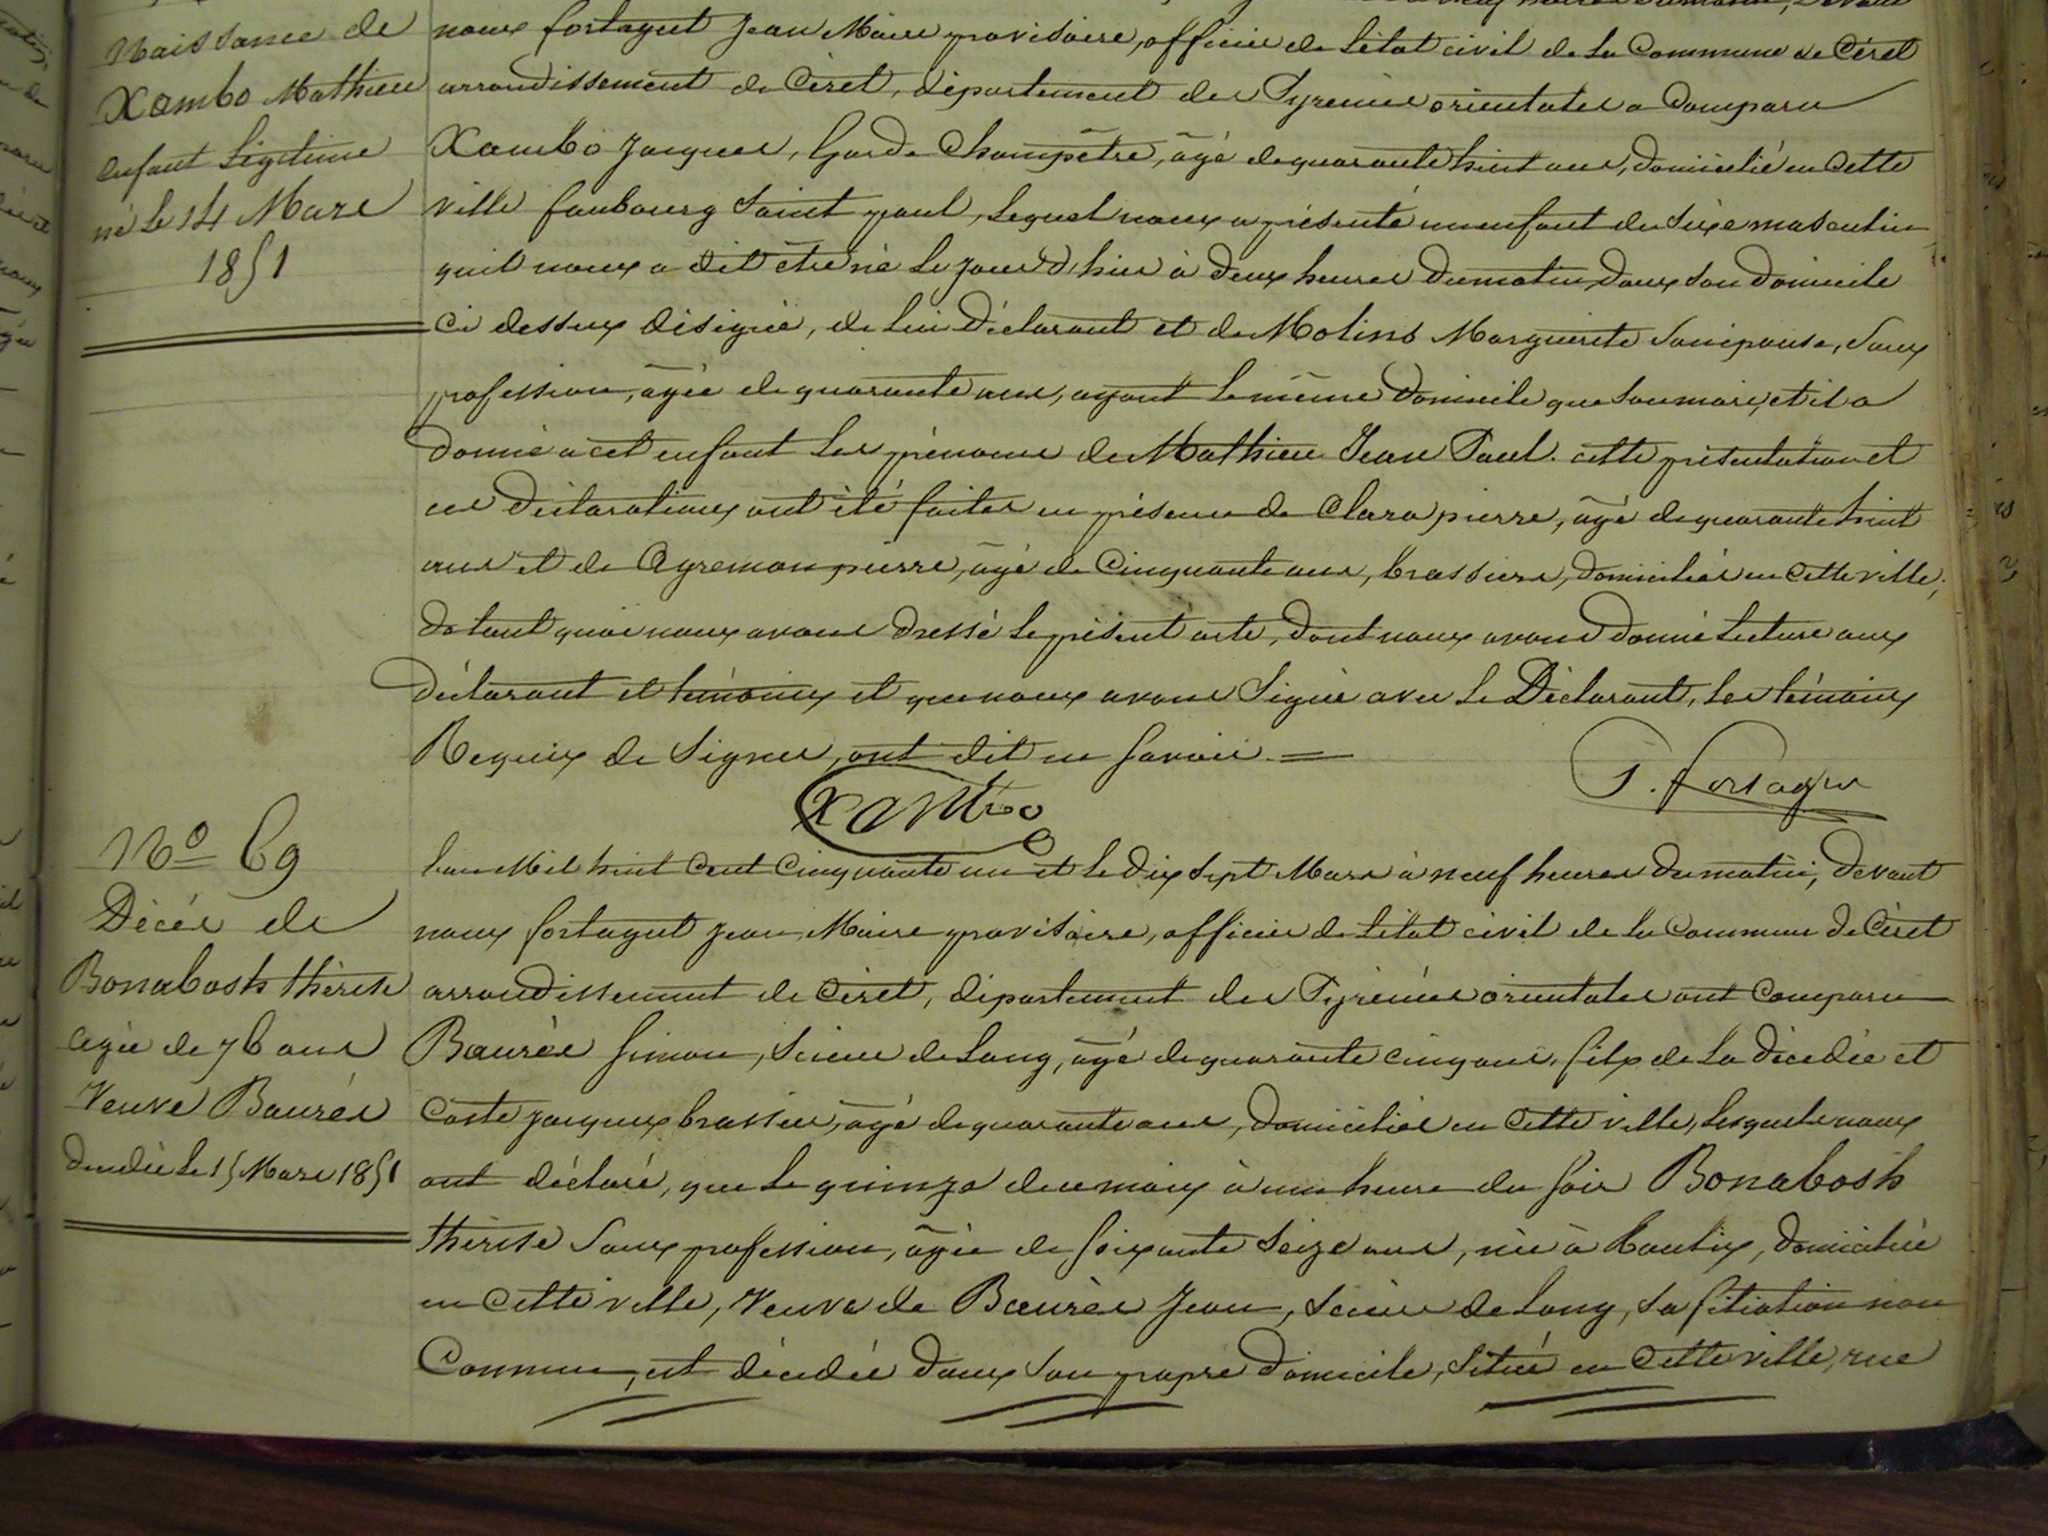 Naissance de
Xambo Mathieu
enfant Légitime
né le 14 Mars
1851
nous fortaguet Jean Maire provisoire, officier de l'état civil de la Commune de Céret
arrondissement de Céret, département des Pyrénées orientales a Comparu
Xambo Jacques, Garde Champêtre, âgé de quarante huit ans, domicilié en Cette
ville faubourg Saint paul, lequel nous a présenté un enfant du Sèxe masculin
qu'il nous a dit être né le jour d'hier à deux heures du matin dans son domicile
ci dessus désigné, de lui Déclarant et de Molins Marguerite Son épouse, Sans
profession, âgée de quarante ans, ayant le même Domicile que son mari, et il a
donné a cet enfant les prénoms de Mathieu Jean Paul. cette présentation et
ces Déclarations ont été faites en présence de Clara pierre, âgé de quarante huit
ans et de Ayreman pierre, âgé de Cinquante ans, brassiers, domiciliés en Cette ville;
de tout quoi nous avons dressé le présent acte, dont nous avons donné lecture aux
déclarant et témoins et que nous avons Signé avec le Déclarant, les témoins
Requis de Signer, ont dit ne savoir.
Xambo
N° 69
Décès de
Bonabosh thérèse
agée de 76 ans
Veuve Baurés
décédée le 15 Mars 1851
L'an Mil huit Cent Cinquante un et le dix Sept Mars à neuf heures du matin, devant
nous fortaguet Jean, Maire provisoire, officier de l'état civil de la Commune de Céret
arrondissement de Céret, département des Pyrénées orientales ont Comparu
Baurés Simon, Scieur de Long, âgé de quarante cinq ans, fils de la décédée et
Coste Jacques brassier, âgé de quarante ans, domiciliés en Cette ville, lesquels nous
ont déclaré, que le quinze de ce mois à une heure du soir Bonabosh
thérèse Sans profession, âgée de soixante Seize ans, née à domiciliée
en Cette ville, Veuve de Baurés Jean, Scieur de Long, Sa filiation non
Connue, est décédée dans son propre domicile, Situé en Cette ville, rue